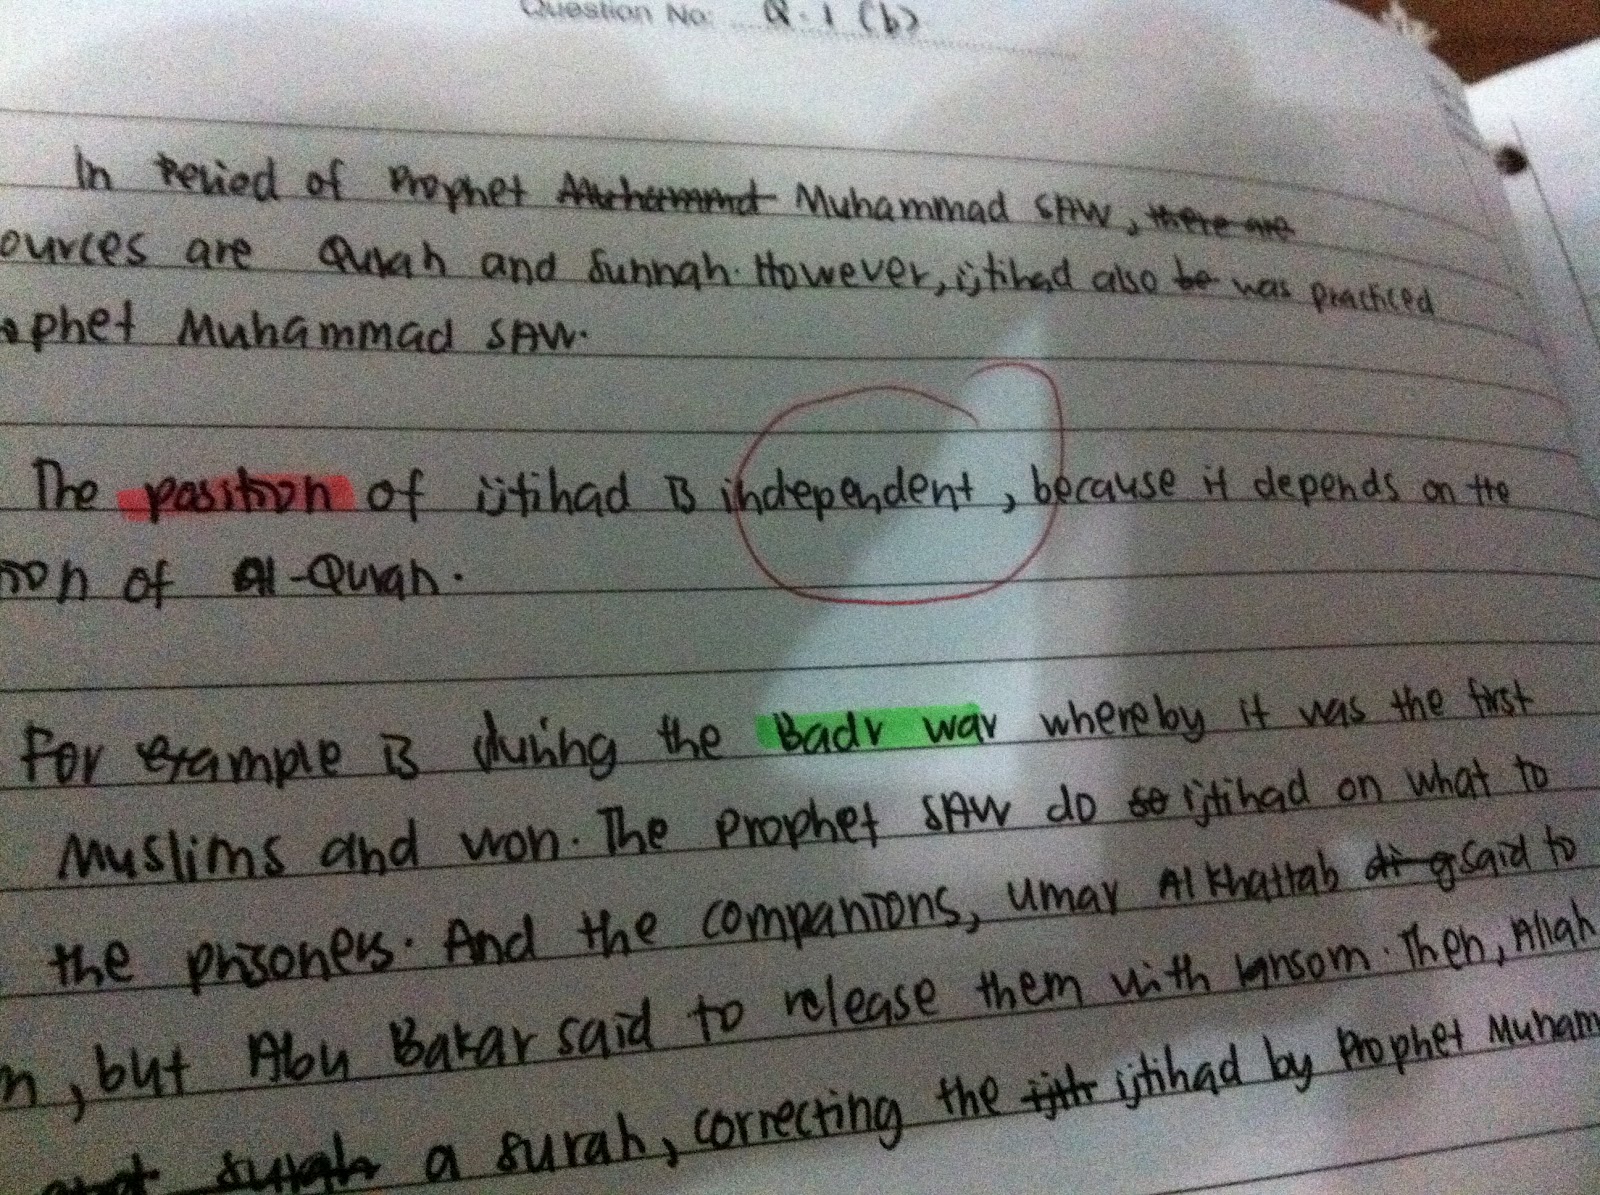 Question No: Q.1 (b)
In Period of Prophet Muhammad SAW, there are
ources are Quran and Sunnah. However, ijtihad also be was practiced
ophet Muhammad SAW.
The position of ijtihad is independent, because it depends on the
on of Al-Quran.
For example is during the Badr war whereby it was the first
Muslims and won. The Prophet SAW do so ijtihad on what to
the prisoners. And the companions, Umar Al Khattab said to
n, but Abu Bakar said to release them with ransom. Then, Allah
surah a surah, correcting the ijtihad by Prophet Muham